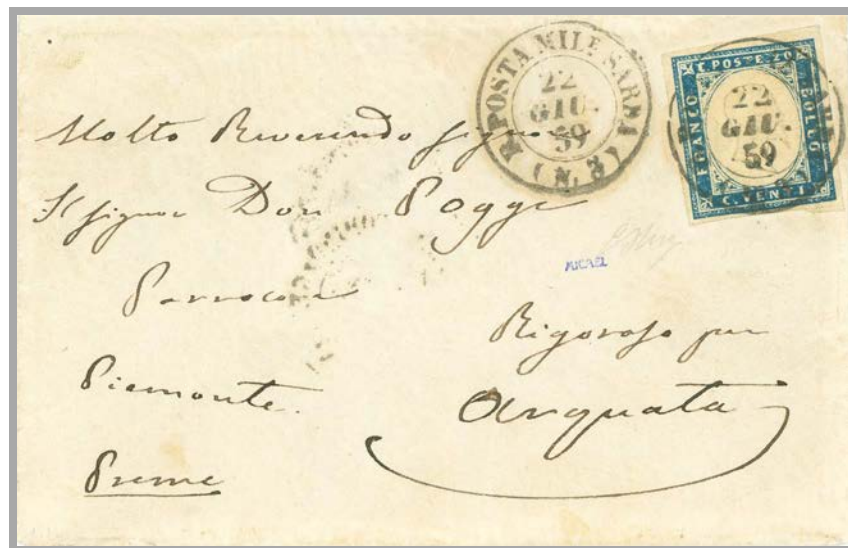 R. POSTA MILE SARDA
22
GIU.
59
(N. 3)
C. POSTE 20
FRANCO
BOLLO
C. VENTI
22
GIU.
59
Molto Reverendo Signor
Il Signor Don Poggi
Parroco a
Rigoroso per
Arquata
Piemonte.
Preme
MICAEL